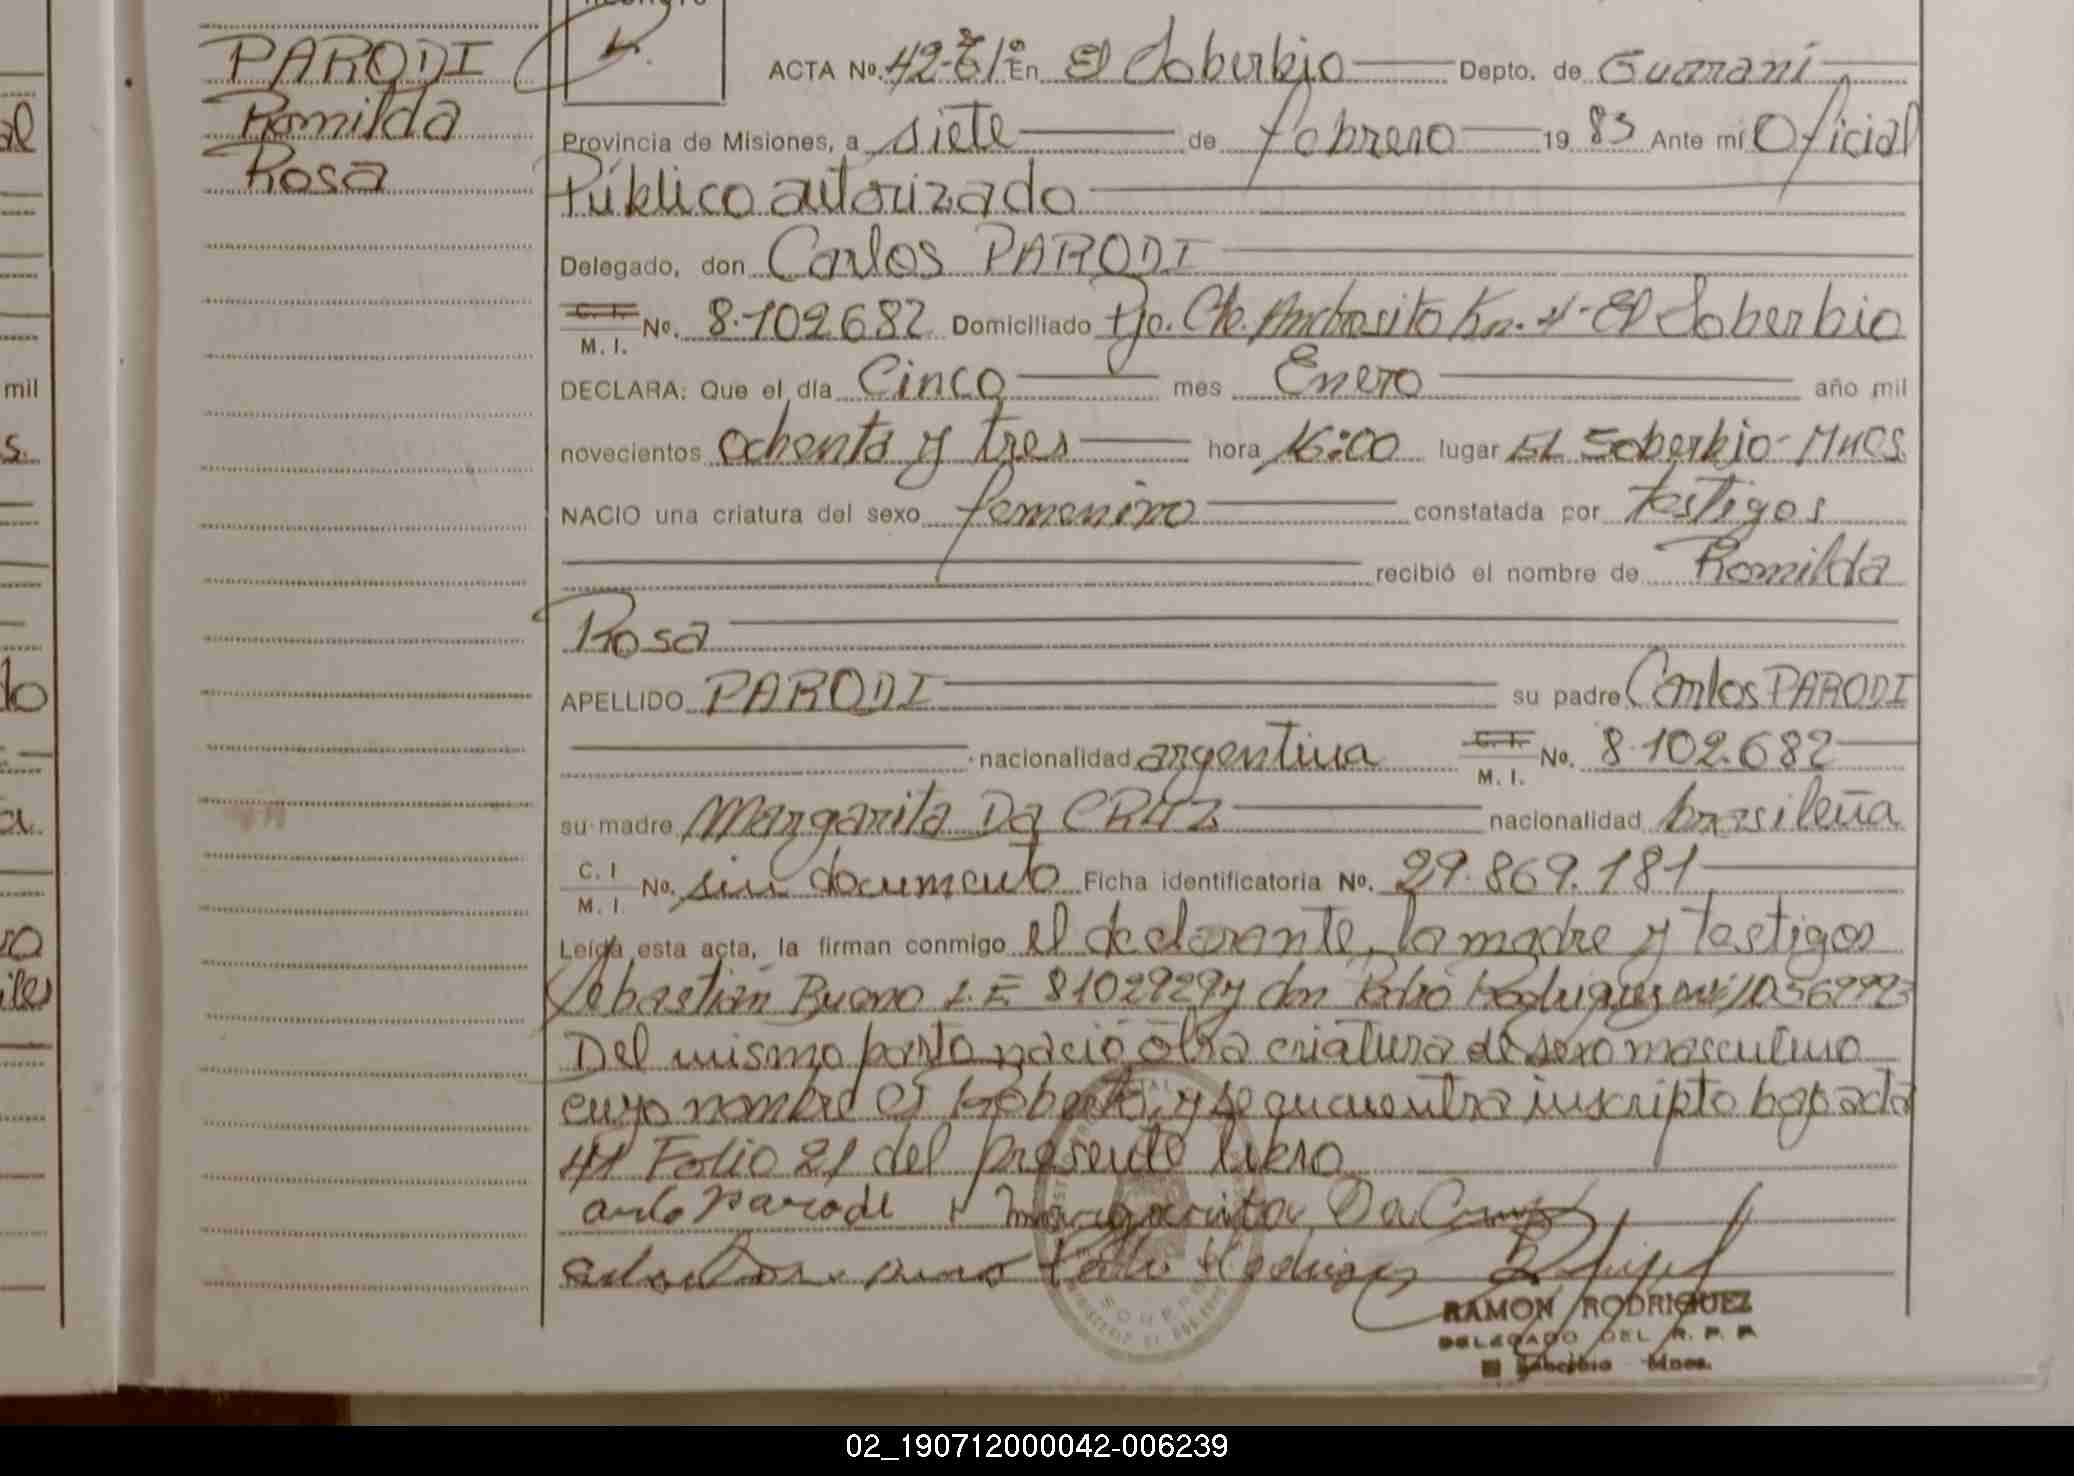 PARODI
Romilda
Rosa
ACTA No. 42- En El Soberbio Depto. de Guaraní
Provincia de Misiones, a siete de febrero 19 83 Ante mí Oficial
Público autorizado
Delegado, don Carlos PARODI
C. I. No. 8.102.682 Domiciliado Pje. Cte. Km. 4 - El Soberbio
M. I.
DECLARA: Que el día Cinco mes Enero año mil
novecientos ochenta y tres hora 16:00 lugar EL Soberbio - Mnes.
NACIO una criatura del sexo femenino constatada por testigos
recibió el nombre de Romilda
Rosa
APELLIDO PARODI su padre Carlos PARODI
nacionalidad argentina C. I. No. 8.102.682
M. I.
su madre Margarita Da CRUZ nacionalidad brasileña
C. I No. sin documento Ficha identificatoria No. 29.869.181
M. I.
Leída esta acta, la firman conmigo el declarante, la madre y testigos
Sebastián Bueno L.E 8102929 y don Pedro Rodriguez
Del mismo parto nació otra criatura de sexo masculino
cuyo nombre es Roberto, y se encuentra inscripto bajo acta
41 Folio 21 del presente libro
Parodi Margarita Da Cruz
Pedro Rodriguez
RAMON RODRIGUEZ
DELEGADO DEL R. P. P.
Soberbio Mnes.
mil
02_190712000042-006239